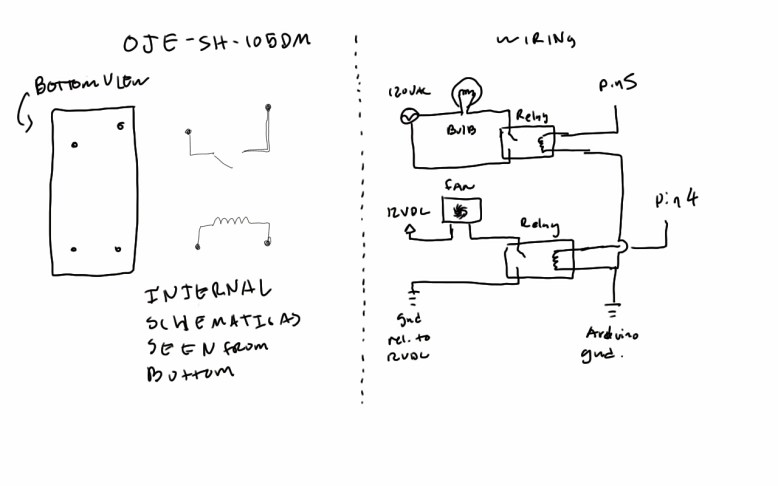 OJE-SH-105DM
BOTTOM VIEW
INTERNAL
SCHEMATIC AS
SEEN FROM
BOTTOM
WIRING
120VAC
BULB
Relay
pin5
FAN
12VDC
Relay
pin4
gnd
rel. to
12VDC
Arduino
gnd.